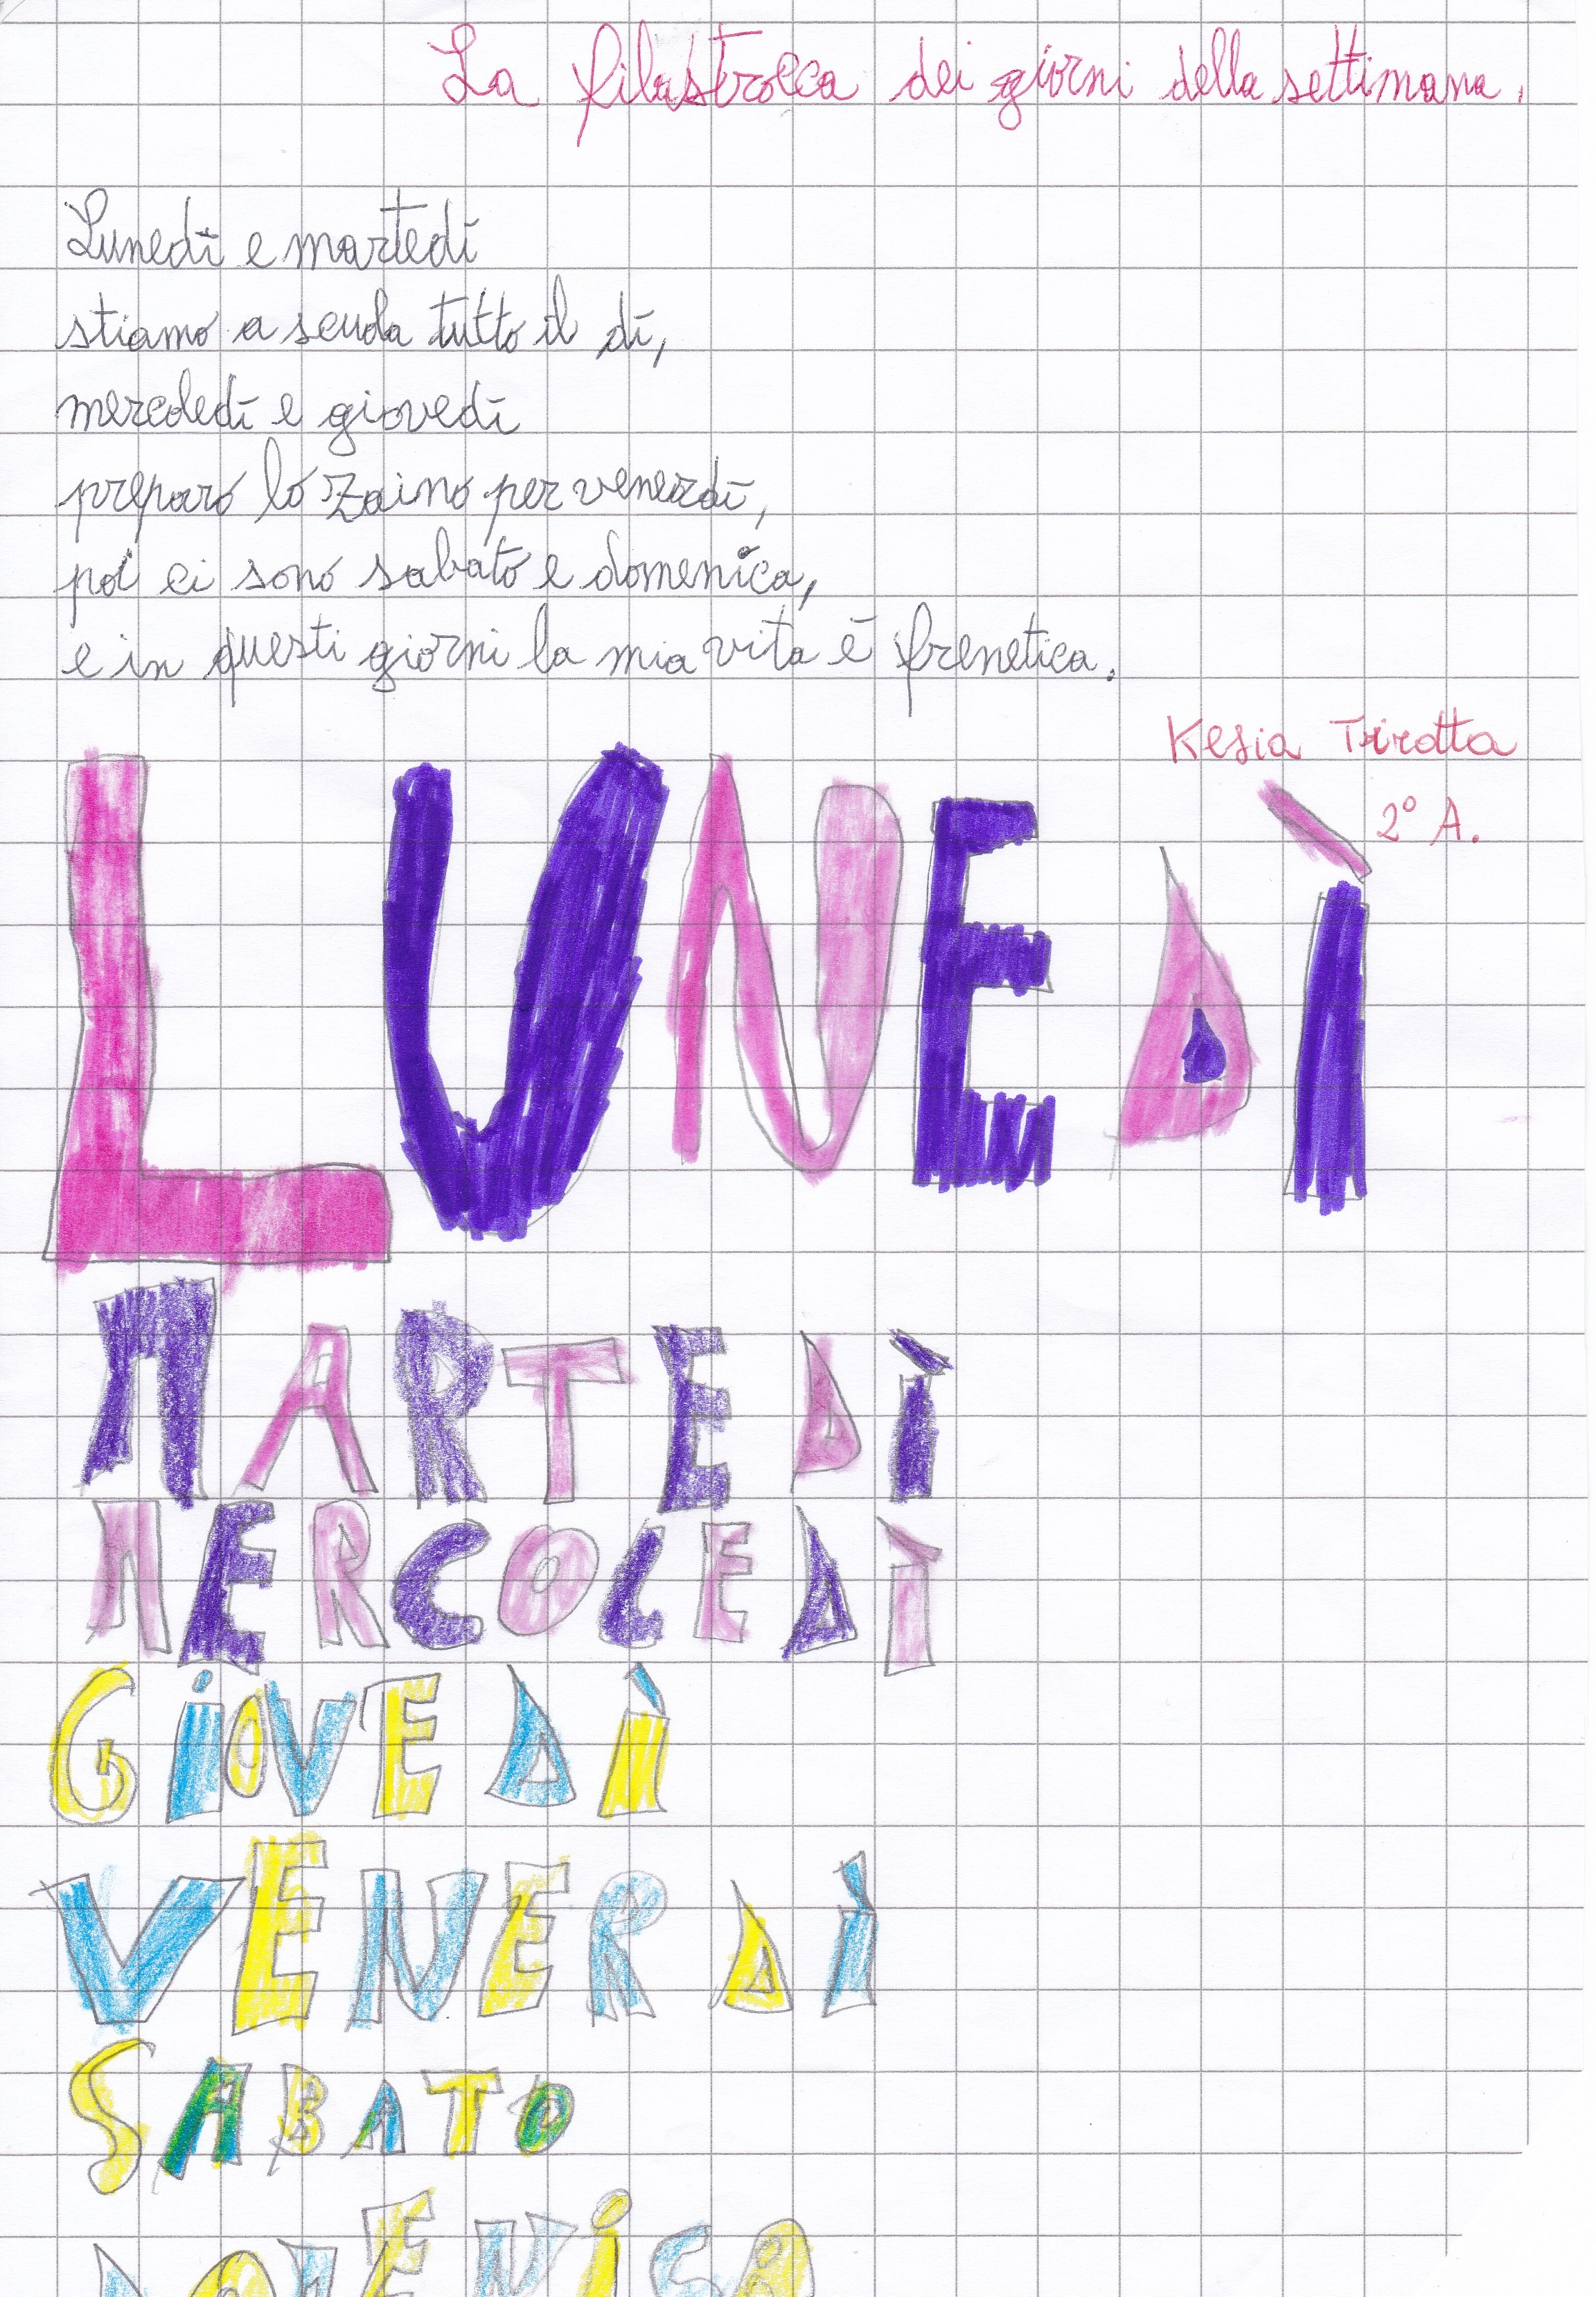 La filastrocca dei giorni della settimana.
Lunedì e martedì
stiamo a scuola tutto il dì,
mercoledì e giovedì
preparo lo zaino per venerdì,
poi ci sono sabato e domenica,
e in questi giorni la mia vita è frenetica.
Kesia Tirotta
2° A.
LUNEDÌ
MARTEDÌ
MERCOLEDÌ
GiOVEDÌ
VENERDÌ
SABATO
DOMENiCA